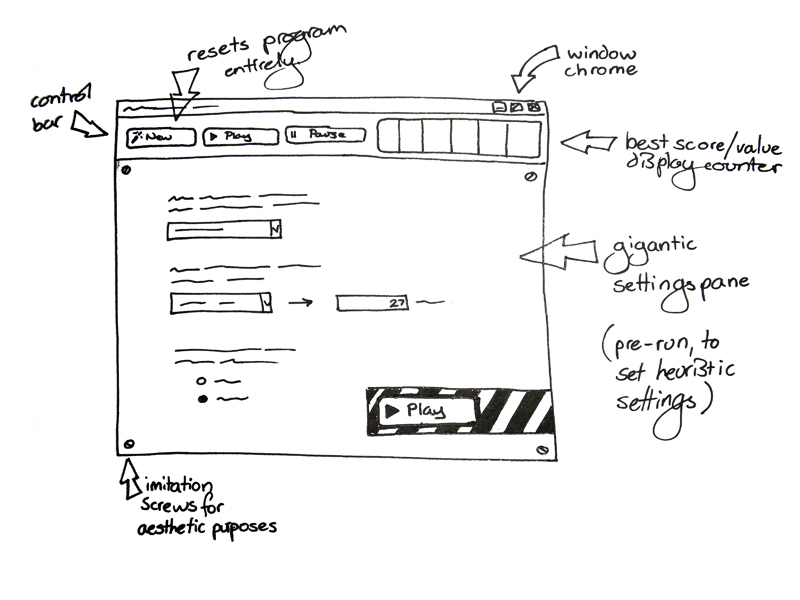 resets program
entirely
window
chrome
control
bar
New
Play
Pause
best score/value
display counter
gigantic
settings pane
27
(pre-run, to
set heuristic
settings)
Play
imitation
screws for
aesthetic puposes